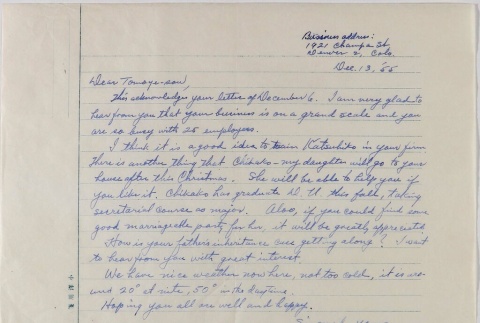 Business address:
1921 Champa St,
Denver 2, Colo.
Dec. 13, '55
Dear Tomoye-san,
This acknowledges your letter of December 6. I am very glad to
hear from you that your business is on a grand scale and you
are so busy with 25 employees.
I think it is a good idea to train Katsuhiko in your firm
There is another thing that Chikako - my daughter will go to your
house after this Christmas. She will be able to help you if
you like it. Chikako has graduate D. U. this fall, taking
secretarial course as major. Also, if you could find some
good marriageable party for her, it will be greatly appreciated.
How is your father's inheritance case getting along? I wait
to hear from you with great interest.
We have nice weather now here, not too cold, it is aro-
und 20° at nite, 50° in the daytime.
Hoping you all are well and happy.